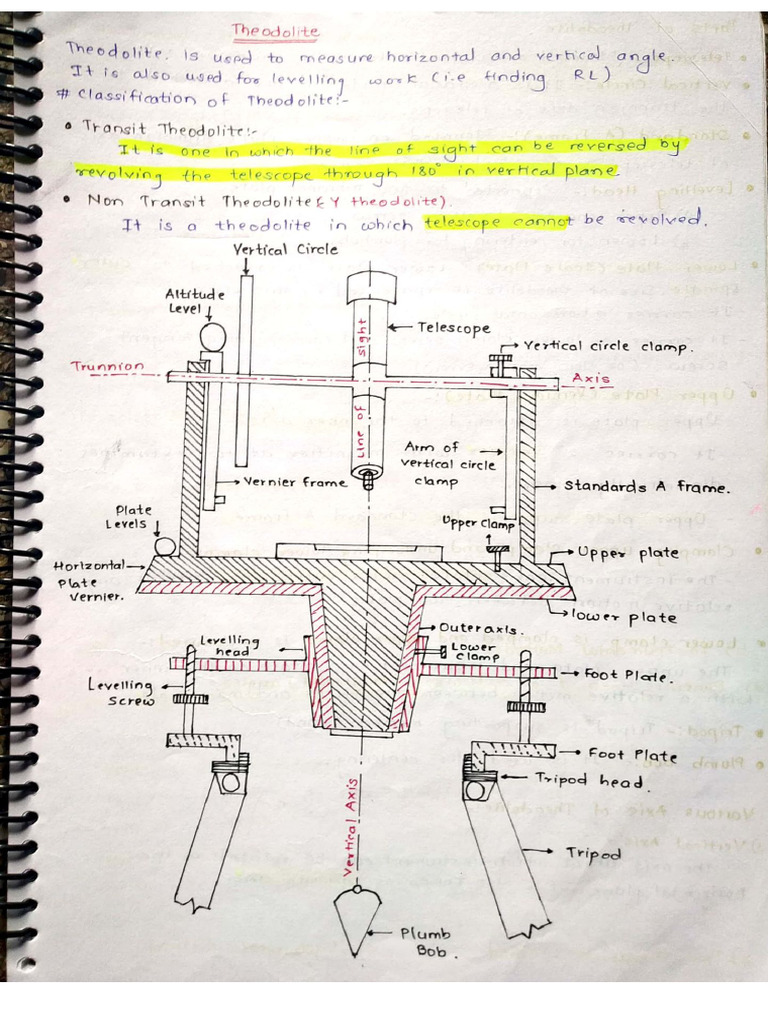 Theodolite
Theodolite. Is used to measure horizontal and vertical angle.
It is also used for levelling work (i.e finding RL)
# Classification of Theodolite:-
• Transit Theodolite:-
It is one in which the line of sight can be reversed by
revolving the telescope through 180° in vertical plane.
• Non Transit Theodolite (Y theodolite).
It is a theodolite in which telescope cannot be revolved.
Vertical Circle
Altitude
Level
Telescope
Vertical circle clamp.
Trunnion
Axis
Line of sight
Arm of
vertical circle
clamp
Vernier frame
Standards A frame.
Plate
Levels
Upper Clamp
Upper plate
Horizontal
Plate
Vernier.
lower plate
Outer axis.
Levelling
head
Lower
Clamp
Foot Plate.
Levelling
Screw
Foot Plate
Tripod head.
Vertical Axis
Tripod
Plumb
Bob.